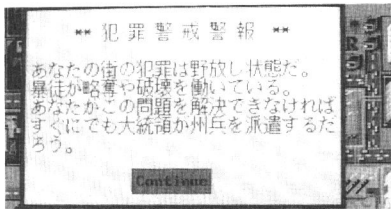 ** 犯罪警戒警報 **
あなたの街の犯罪は野放し状態だ。
暴徒が略奪や破壊を働いている。
あなたがこの問題を解決できなければ
すぐにでも大統領が州兵を派遣するだ
ろう。
Continue